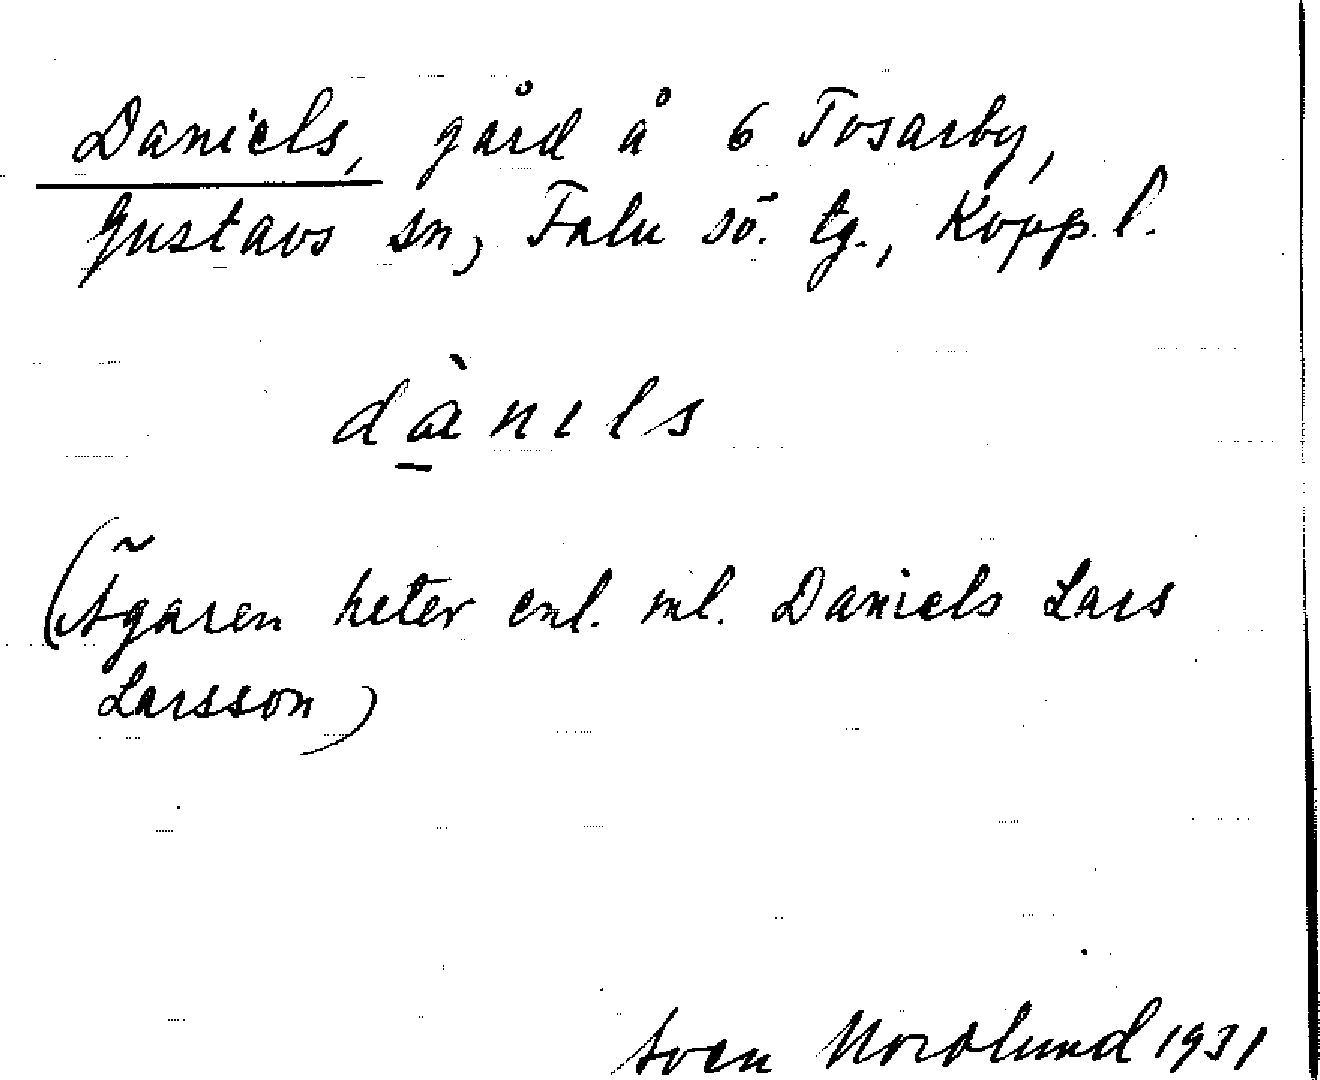 Daniels, gård å 6 Tosarby,
Gustavs sn, Falu sö. tg., Kopp. l.
dànɩls
(Ägaren heter enl. ml. Daniels Lars
Larsson)
Sven Nordlund 1931